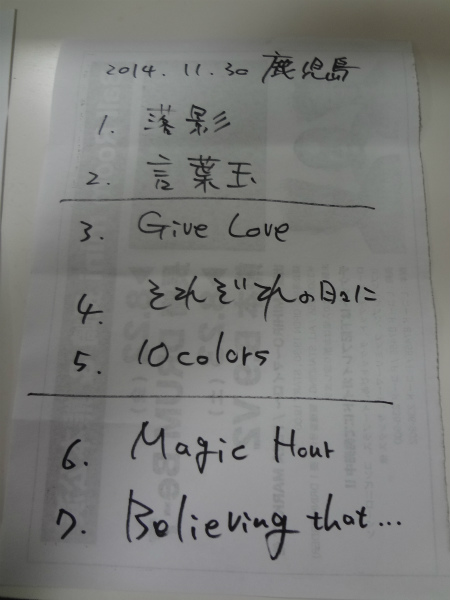 2014.11.30 鹿児島
1. 落影
2. 言葉玉
3. Give Love
4. それぞれの日々に
5. 10 colors
6. Magic Hour
7. Believing that...